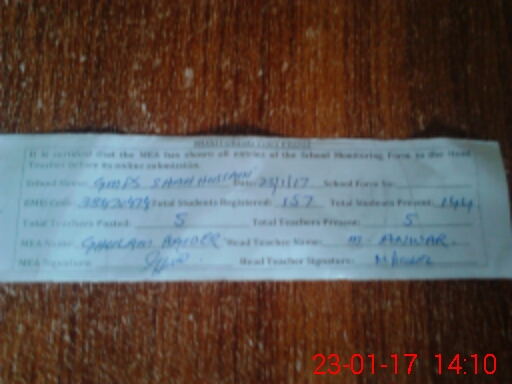 MONITORING VISIT PROOF
It is certified that the MEA has shown all entries of the School Monitoring Form to the Head
Teacher before its online submission.
School Name: GMPS SHAH HUSSAIN Date: 23/1/17 School Form No:
EMIS Code: Total Students Registered: 157 Total Students Present: 144
Total Teachers Posted: 5 Total Teachers Present: 5
MEA Name: GHULAM HAIDER Head Teacher Name: M. ANWAR
MEA Signature: Head Teacher Signature:
23-01-17 14:10